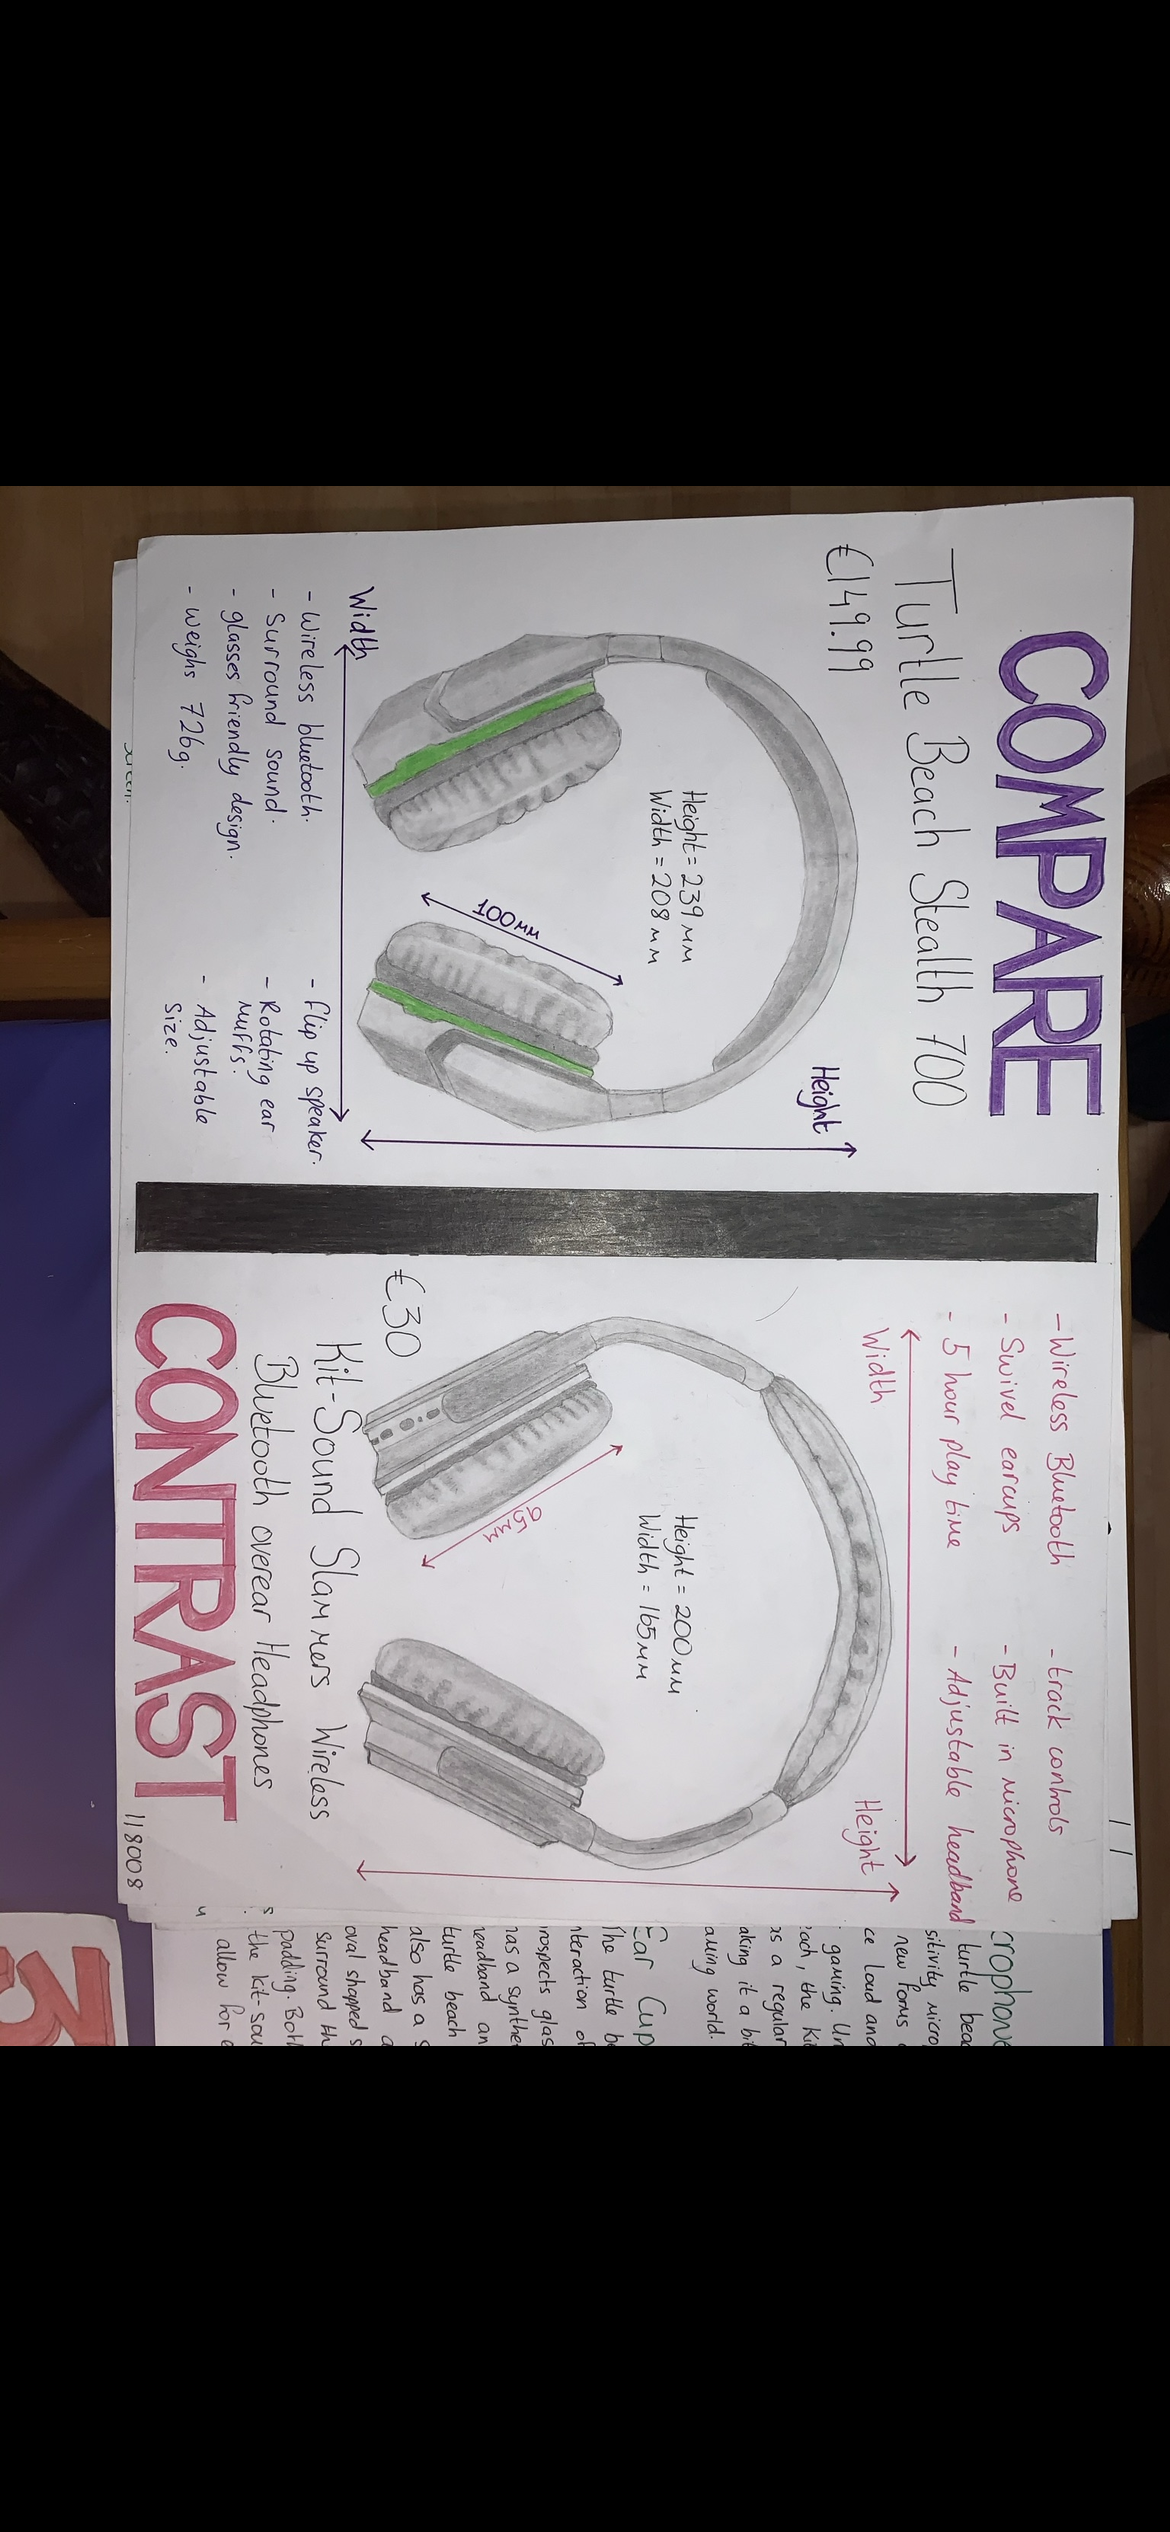 COMPARE
Turtle Beach Stealth 700
€149.99
Height
Height = 239mm
Width = 208mm
100mm
Width
- Wireless bluetooth.
- Surround sound.
- glasses friendly design.
- weighs 726g.
- flip up speaker.
- Rotating ear
muffs.
- Adjustable
size.
- Wireless Bluetooth
- Swivel earcups
- 5 hour play time
- track controls
- Built in microphone
- Adjustable headband
Width
Height
Height = 200mm
Width = 165mm
95mm
€30
Kit-Sound Slammers Wireless
Bluetooth overear Headphones
CONTRAST
118008
11
crophone
turtle beac
sitivity micro
new forms
ce loud and
gaming. Un
each, the Ki
as a regular
aking it a bit
aming world.
Ear Cup
The turtle be
nteraction of
rospects glas
has a synthe
eadband an
turtle beach
also has a s
headband a
oval shapped s
Surround th
padding. Both
the Kit-sou
allow for e
screen.
3